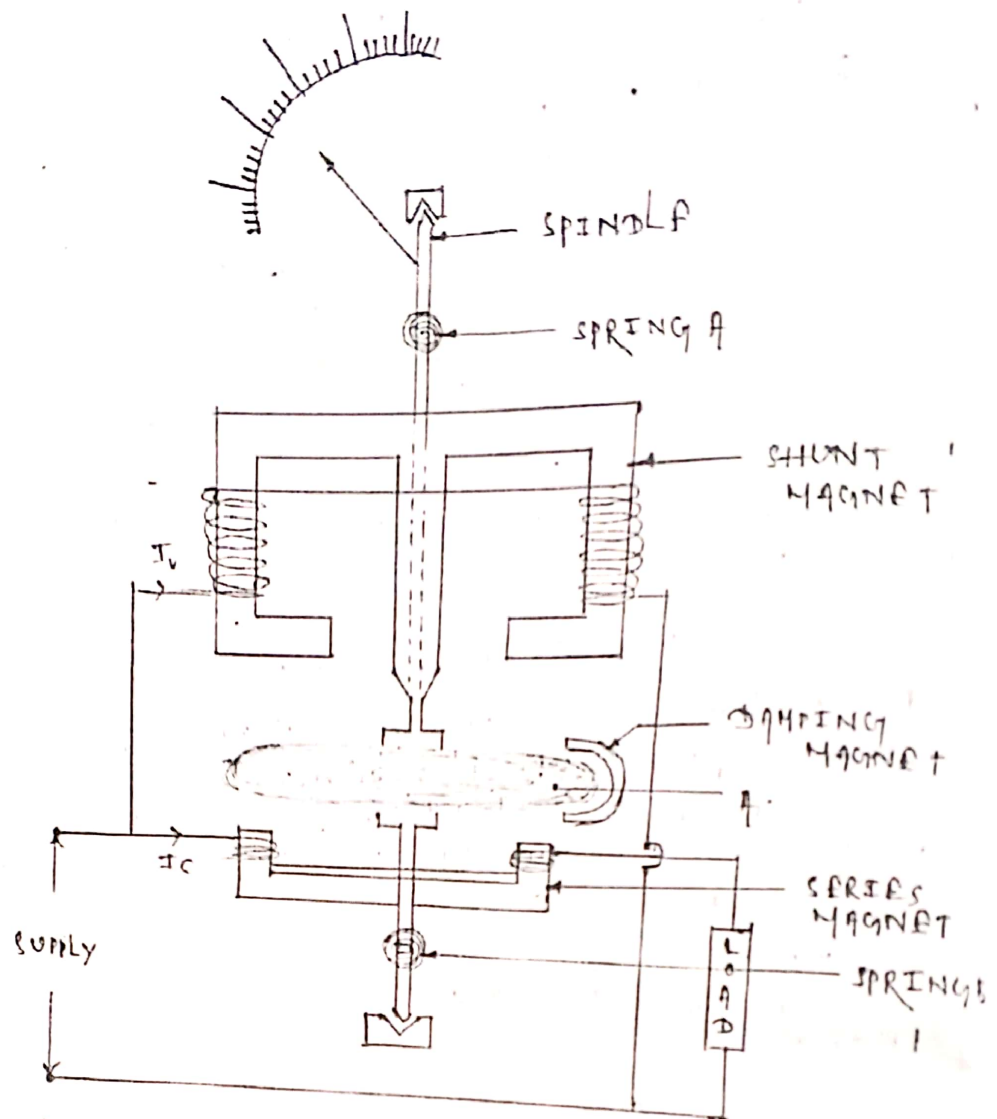 SPINDLE
SPRING A
SHUNT
MAGNET
Iv
DAMPING
MAGNET
A
IC
SERIES
MAGNET
SUPPLY
LOAD
SPRING B